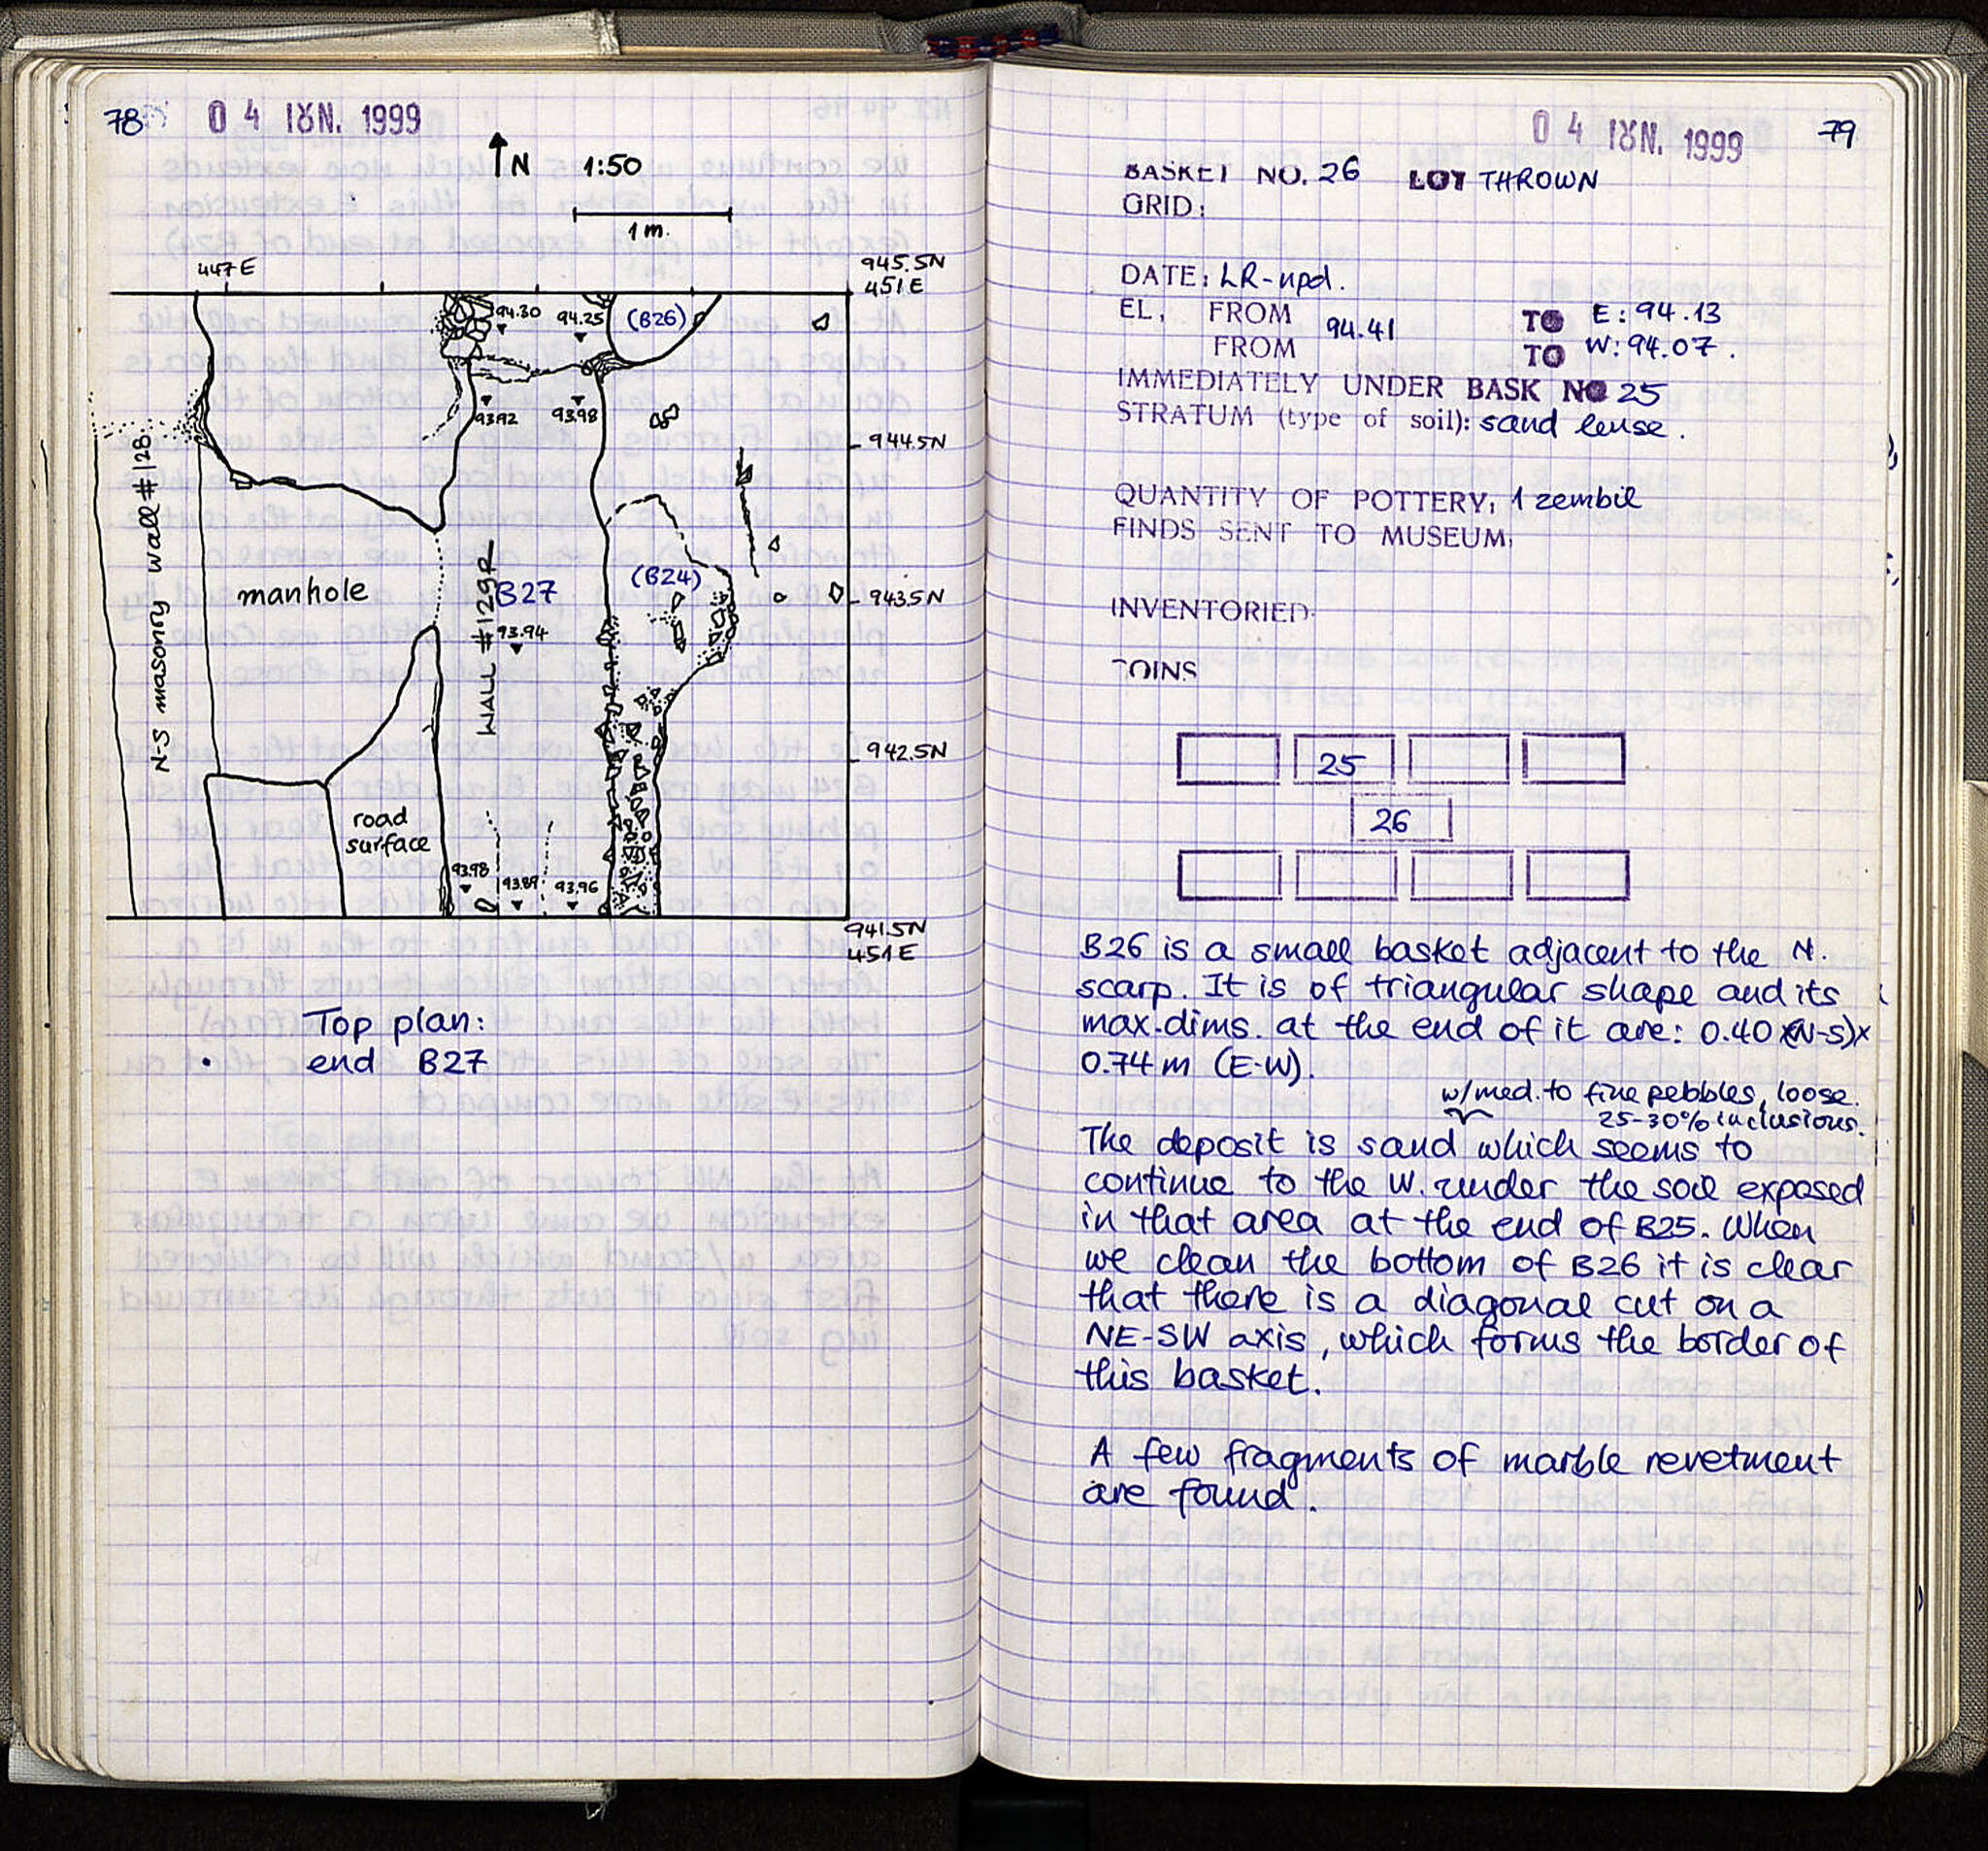 78
04 ΙΟΥΝ. 1999
N 1:50
1 m.
447E
945.5N
451E
94.30
94.25
(B26)
93.92
93.98
944.5N
N-S masonry wall #128
manhole
WALL #129R
B27
93.94
(B24)
943.5N
942.5N
road
surface
93.98
93.89
93.96
941.5N
451E
Top plan:
end B27
04 ΙΟΥΝ. 1999
79
BASKET NO. 26 LOT THROWN
GRID:
DATE: LR-npd.
EL, FROM 94.41 TO E: 94.13
FROM TO W: 94.07.
IMMEDIATELY UNDER BASK NO 25
STRATUM (type of soil): sand lense.
QUANTITY OF POTTERY, 1 zembil
FINDS SENT TO MUSEUM,
INVENTORIED
COINS
25
26
B26 is a small basket adjacent to the N.
scarp. It is of triangular shape and its
max.dims. at the end of it are: 0.40 (N-S)x
0.74m (E-W).
w/med. to fine pebbles, loose.
25-30% inclusions.
The deposit is sand which seems to
continue to the W. under the soil exposed
in that area at the end of B25. When
we clean the bottom of B26 it is clear
that there is a diagonal cut on a
NE-SW axis, which forms the border of
this basket.
A few fragments of marble revetment
are found.